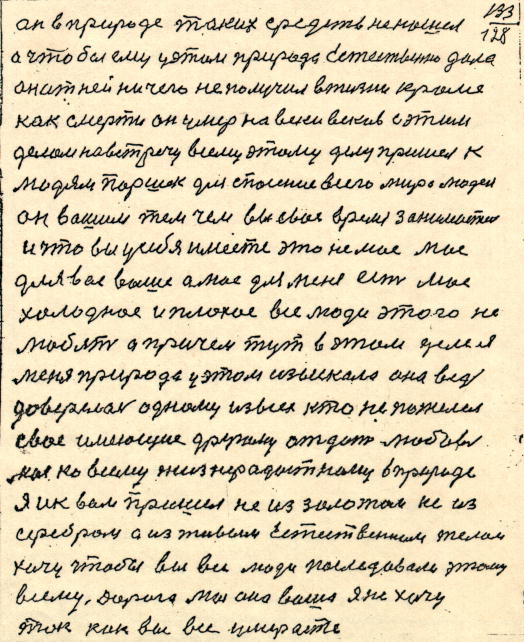 133
128
он в природе таких средств не нашел
а чтобы ему у этом природа Естественно дала
она от ней ничего не получил в жизни кроме
как смерти он умер на веки веков с этим
делом навстречу всему этому делу пришел к
людям Паршек для спасение всего мира людей
он вашим тем чем вы свое время занимаетися
и что вы у себя имеете это не мое мое
для вас ваше а мое для меня есть мое
холодное и плохое все люди этого не
любять а причем тут в этом деле я
меня природа у этом изыскала она ведь
доверелась одному из всех кто не пожелел
свое имеющие другому отдать любовь
ко всему жизнерадостному в природе
Я и к вам пришел не из золотом не из
серебром а из живым Естественном телом
хочу чтобы вы все люди последовали этому
всему. Дорога моя она ваша я не хочу
так как вы все умираете